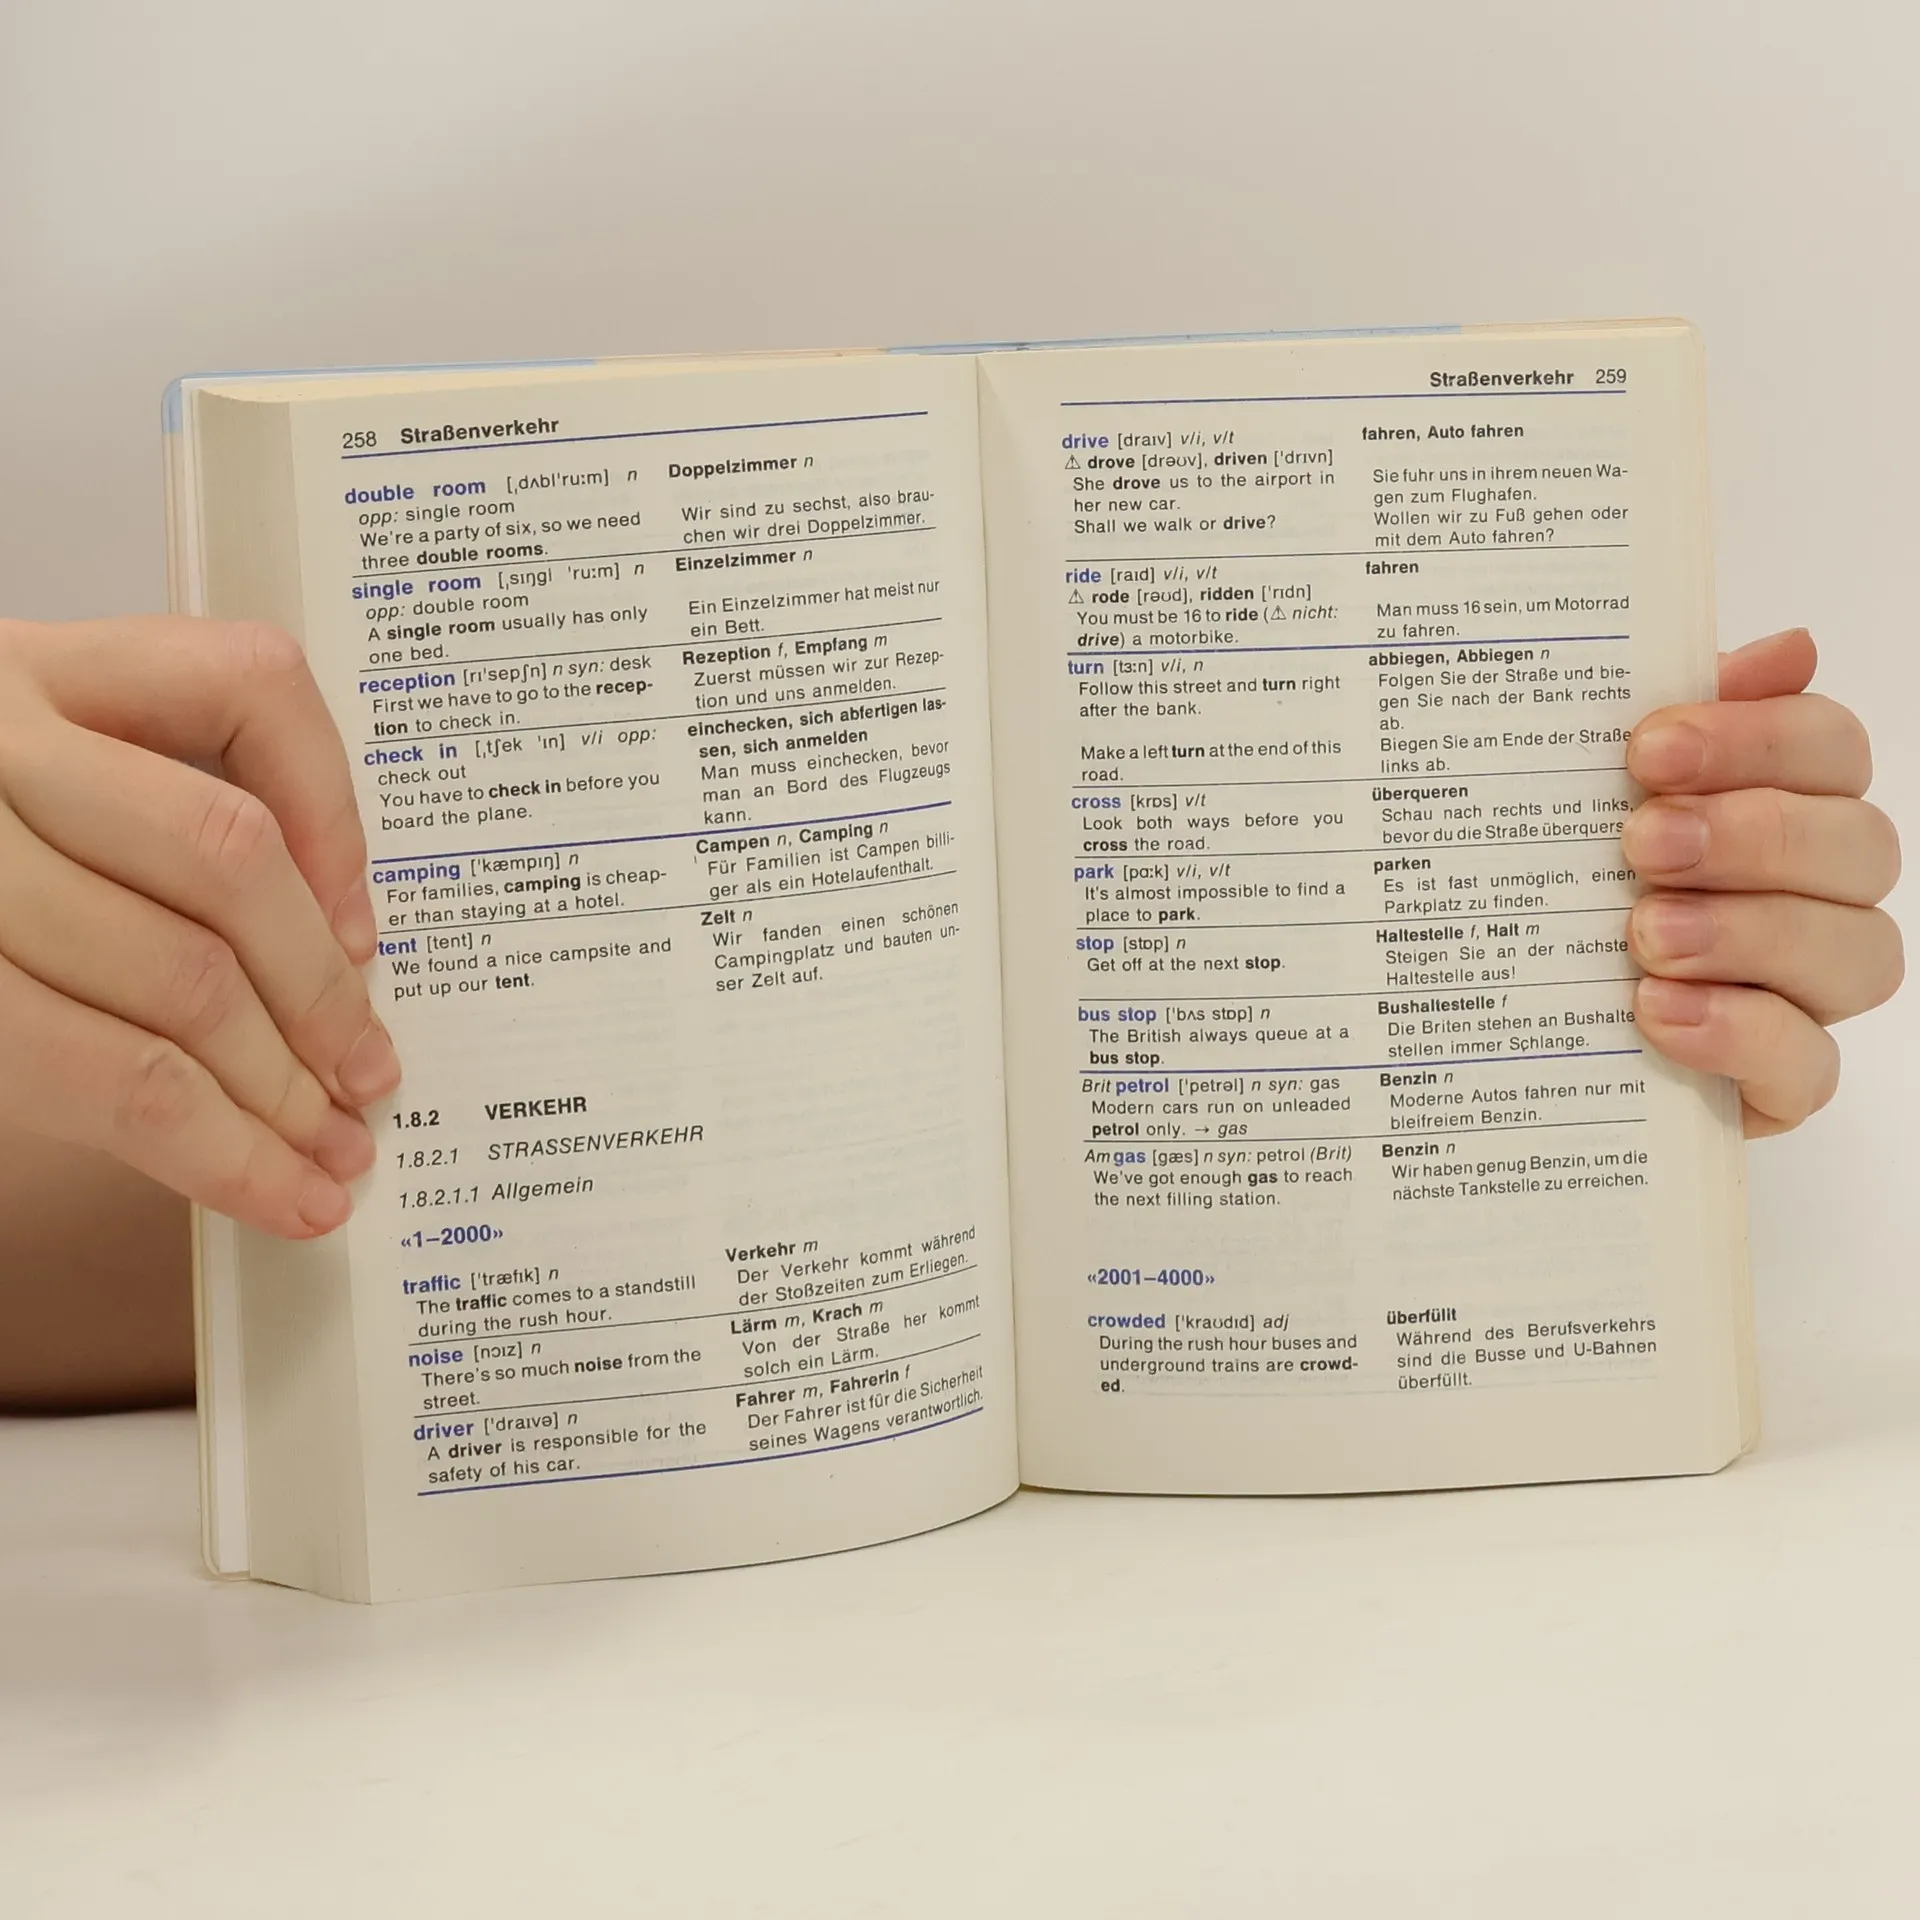 258 Straßenverkehr
double room [ˌdʌbl'ruːm] n
opp: single room
We're a party of six, so we need
three double rooms.
Doppelzimmer n
Wir sind zu sechst, also brau-
chen wir drei Doppelzimmer.
single room [ˌsɪŋgl 'ruːm] n
opp: double room
A single room usually has only
one bed.
Einzelzimmer n
Ein Einzelzimmer hat meist nur
ein Bett.
reception [rɪ'sepʃn] n syn: desk
First we have to go to the recep-
tion to check in.
Rezeption f, Empfang m
Zuerst müssen wir zur Rezep-
tion und uns anmelden.
check in [ˌtʃek 'ɪn] v/i opp:
check out
You have to check in before you
board the plane.
einchecken, sich abfertigen las-
sen, sich anmelden
Man muss einchecken, bevor
man an Bord des Flugzeugs
kann.
camping ['kæmpɪŋ] n
For families, camping is cheap-
er than staying at a hotel.
Campen n, Camping n
Für Familien ist Campen billi-
ger als ein Hotelaufenthalt.
tent [tent] n
We found a nice campsite and
put up our tent.
Zelt n
Wir fanden einen schönen
Campingplatz und bauten un-
ser Zelt auf.
1.8.2 VERKEHR
1.8.2.1 STRASSENVERKEHR
1.8.2.1.1 Allgemein
«1–2000»
traffic ['træfɪk] n
The traffic comes to a standstill
during the rush hour.
Verkehr m
Der Verkehr kommt während
der Stoßzeiten zum Erliegen.
noise [nɔɪz] n
There's so much noise from the
street.
Lärm m, Krach m
Von der Straße her kommt
solch ein Lärm.
driver ['draɪvə] n
A driver is responsible for the
safety of his car.
Fahrer m, Fahrerin f
Der Fahrer ist für die Sicherheit
seines Wagens verantwortlich.
Straßenverkehr 259
drive [draɪv] v/i, v/t
⚠ drove [drəʊv], driven ['drɪvn]
She drove us to the airport in
her new car.
Shall we walk or drive?
fahren, Auto fahren
Sie fuhr uns in ihrem neuen Wa-
gen zum Flughafen.
Wollen wir zu Fuß gehen oder
mit dem Auto fahren?
ride [raɪd] v/i, v/t
⚠ rode [rəʊd], ridden ['rɪdn]
You must be 16 to ride (⚠ nicht:
drive) a motorbike.
fahren
Man muss 16 sein, um Motorrad
zu fahren.
turn [tɜːn] v/i, n
Follow this street and turn right
after the bank.
Make a left turn at the end of this
road.
abbiegen, Abbiegen n
Folgen Sie der Straße und bie-
gen Sie nach der Bank rechts
ab.
Biegen Sie am Ende der Straße
links ab.
cross [krɒs] v/t
Look both ways before you
cross the road.
überqueren
Schau nach rechts und links,
bevor du die Straße überquers
park [pɑːk] v/i, v/t
It's almost impossible to find a
place to park.
parken
Es ist fast unmöglich, einen
Parkplatz zu finden.
stop [stɒp] n
Get off at the next stop.
Haltestelle f, Halt m
Steigen Sie an der nächste
Haltestelle aus!
bus stop ['bʌs stɒp] n
The British always queue at a
bus stop.
Bushaltestelle f
Die Briten stehen an Bushalte
stellen immer Schlange.
Brit petrol ['petrəl] n syn: gas
Modern cars run on unleaded
petrol only. → gas
Benzin n
Moderne Autos fahren nur mit
bleifreiem Benzin.
Am gas [gæs] n syn: petrol (Brit)
We've got enough gas to reach
the next filling station.
Benzin n
Wir haben genug Benzin, um die
nächste Tankstelle zu erreichen.
«2001–4000»
crowded ['kraʊdɪd] adj
During the rush hour buses and
underground trains are crowd-
ed.
überfüllt
Während des Berufsverkehrs
sind die Busse und U-Bahnen
überfüllt.